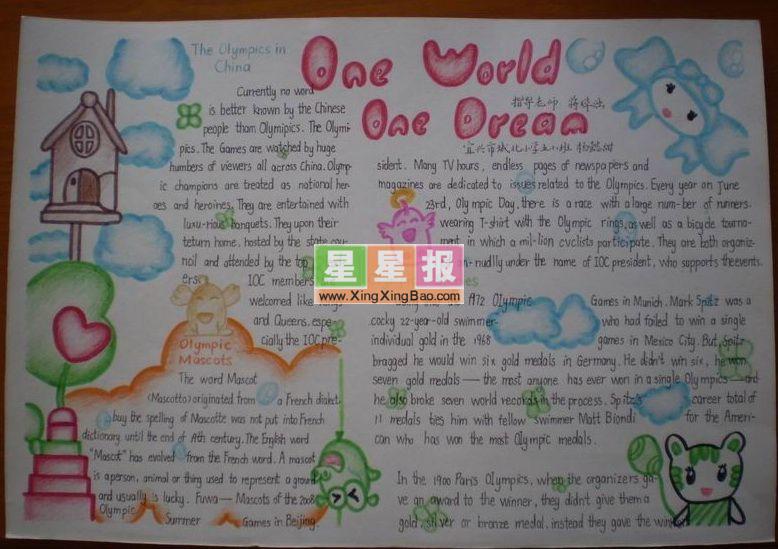 The Olympics in
China
One World
One Dream
指导老师
宜兴市城北小学五小班
Currently no word
is better known by the Chinese
people than Olymipics. The Olymi-
pics. The Games are watched by huge
numbers of viewers all across China. Olymp-
ic champions are treated as national her-
oes and heroines. They are entertained with
luxu-rious banquets. They upon their
teturn home, hosted by the state cou-
noil and attended by the top
ers. IOC members are
welcomed like Kings
and Queens, espe-
cially the IOC pre-
sident. Many TV hours, endless pages of newspapers and
magazines are dedicated to issues related to the Olympics. Every year on June
23rd, Olympic Day, there is a race with a large num-ber of runners.
wearing T-shirt with the Olympic rings, as well as a bicycle tourna-
ment in which a mil-lion cyclists participate. They are both organiz-
nudlly under the name of IOC president, who supports the events.
星星报
www.XingXingBao.com
Olympic
Mascots
The word Mascot
(Mascotto) originated from a French dialect.
buy the spelling of Mascotte was not put into French
dictionary until the end of 19th century. The English word
"Mascot" has evolved from the French word. A mascot
is a person, animal or thing used to represent a ground
and usually is lucky. Fuwa — Mascots of the 2008
Olympic Summer Games in Beijing.
1972 Olympic Games in Munich. Mark Spitz was a
cocky 22-year-old swimmer who had failed to win a single
individual gold in the 1968 games in Mexico City. But Spitz
bragged he would win six gold medals in Germany. He didn't win six, he won
seven gold medals — the most anyone has ever won in a single Olympics — and
he also broke seven world records in the process. Spitz's career total of
11 medals ties him with fellow swimmer Matt Biondi for the Ameri-
can who has won the most Olympic medals.
In the 1900 Paris Olympics, when the organizers ga-
ve an award to the winner, they didn't give them a
gold, silver or bronze medal. instead they gave the winner